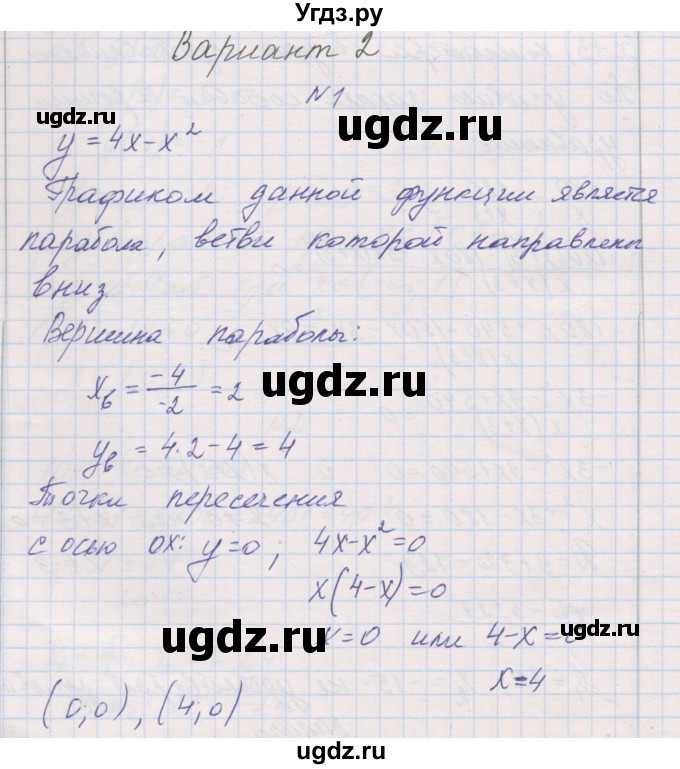 Угдз.ру
Вариант 2
ugdz.ru
N1
ugdz.ru
y = 4x - x²
ugdz.ru
Графиком данной функции является
парабола, ветви которой направлены
вниз.
Вершина параболы:
ugdz.ru
x_в = -4/-2 = 2
y_в = 4·2 - 4 = 4
Точки пересечения
с осью ox: y=0; 4x-x²=0
x(4-x)=0
ugdz.ru
ugdz.ru
x=0 или 4-x=0
x=4
(0;0), (4;0)
ugdz.ru